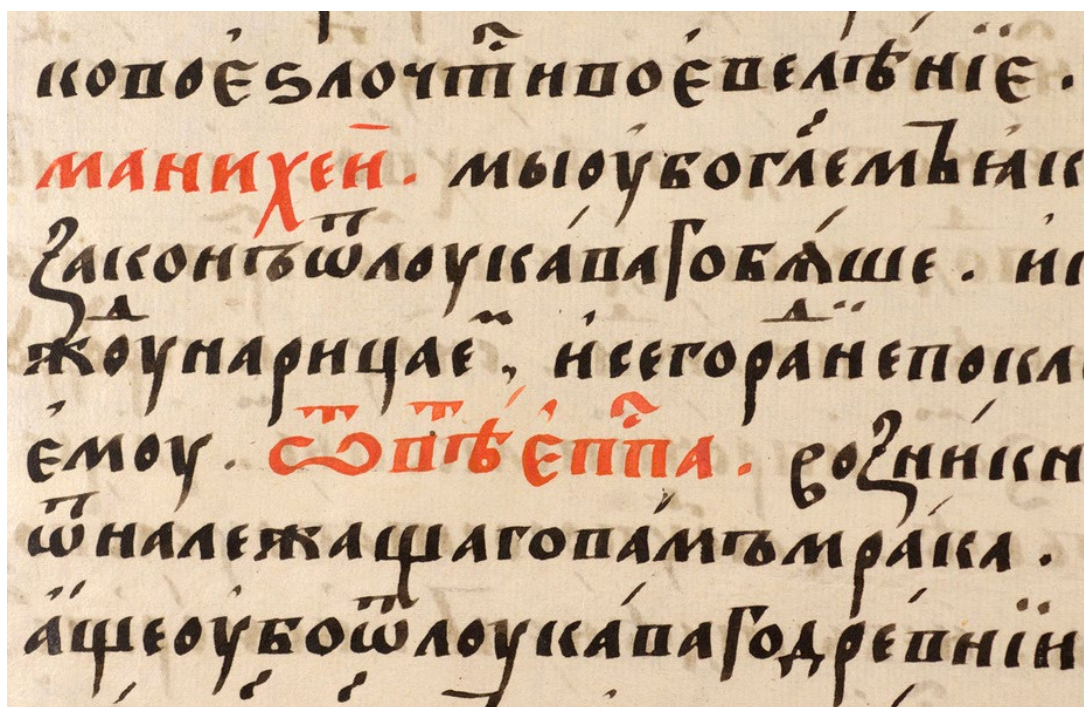 ковоє ѕлочтⷭ҇ивоє велѣнїє .
манихеи҃ . мы оубо гл҃емъ ꙗк
законъ ѿ лоукаваго бѧ́ше . и
жⷣоу нарицаеⷨ , и сего раⷣ не покл
ємоу . ѿвѣⷮ єпⷭ҇па . возникн
ѿ належащаго вамъ мрака .
аще оубо ѿ лоукаваго древнїи